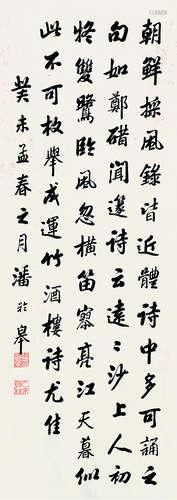 朝鮮採風錄皆近體詩中多可誦之
句如鄭碏聞篴詩云遠〻沙上人初
疑雙鷺臨風忽橫笛寥亮江天暮似
此不可枚舉成運竹酒樓詩尤佳
癸未孟春之月潘齡皋